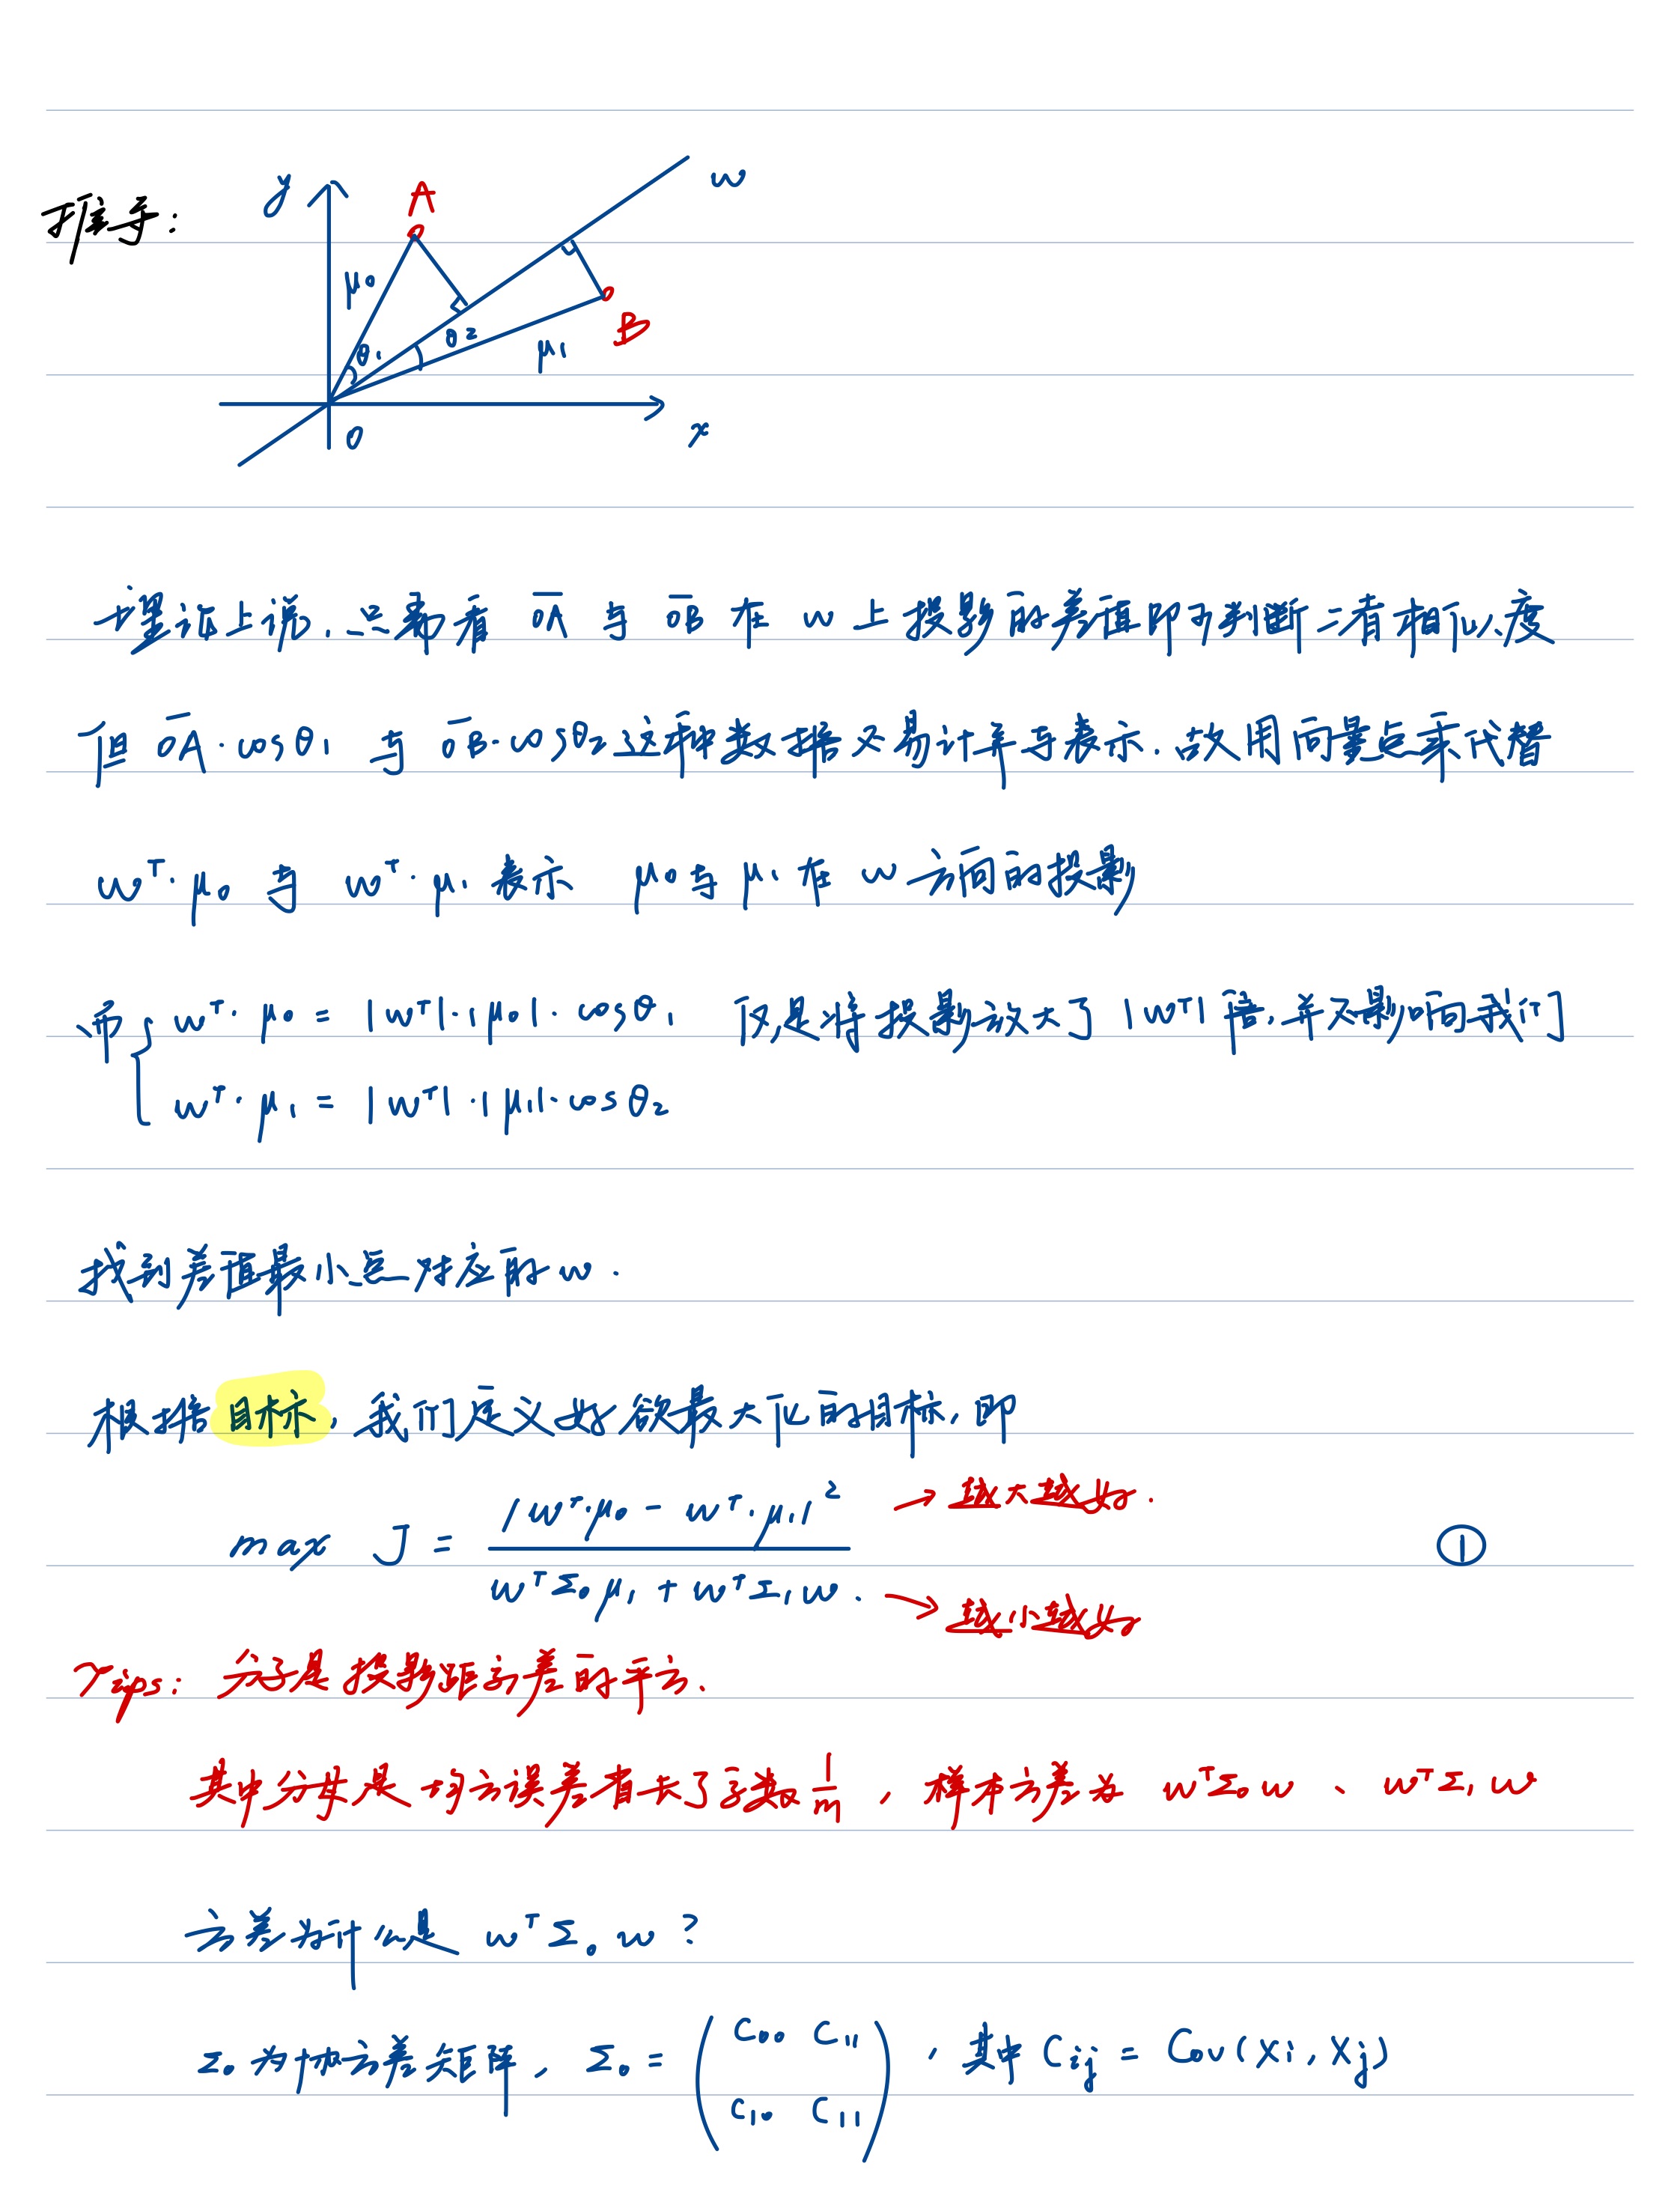 推导:
y
A
w
μ0
θ1
θ2
B
μ1
O
x
理论上说,只需看 OA 与 OB 在 w 上投影的差值即可判断二者相似度
但 OA·cosθ1 与 OB·cosθ2 这种数据不易计算与表示.故用向量点乘代替
w^T·μ0 与 w^T·μ1 表示 μ0与μ1在 w 方向的投影
而{ w^T·μ0 = |w^T|·|μ0|·cosθ1 仅是将投影放大了 |w^T| 倍,并不影响我们
w^T·μ1 = |w^T|·|μ1|·cosθ2
找到差值最小点对应的w.
根据目标,我们定义好欲最大化的目标,即
max J = |w^T·μ0 - w^T·μ1|^2 / (w^TΣ0μ1 + w^TΣ1w.) →越大越好. →越小越好 ①
Tips: 分子是投影距离差的平方.
其中分母是均方误差省去了系数 1/m , 样本方差为 w^TΣ0w、w^TΣ1w
方差为什么是 w^TΣ0w ?
Σ0 为协方差矩阵, Σ0 = (C00 C11 / C10 C11) , 其中 Cij = Cov(Xi, Xj)